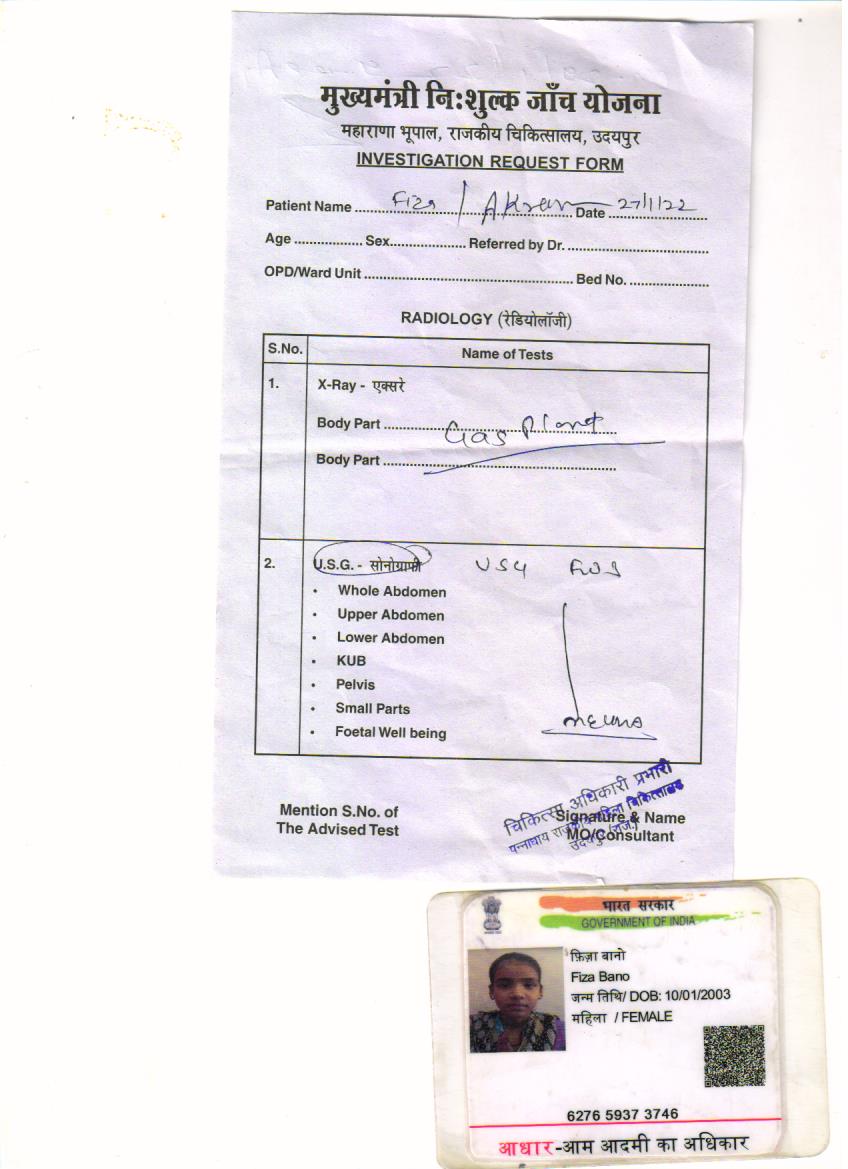 मुख्यमंत्री नि:शुल्क जाँच योजना
महाराणा भूपाल, राजकीय चिकित्सालय, उदयपुर
INVESTIGATION REQUEST FORM
Patient Name ........ Fiza / Akram ........ Date 27/1/22
Age ................. Sex................... Referred by Dr. ....................................
OPD/Ward Unit ...................................................... Bed No. ....................
RADIOLOGY (रेडियोलॉजी)
S.No. Name of Tests
1. X-Ray - एक्सरे
Body Part ............................................................
Gas Plant
Body Part ............................................................
2. U.S.G. - सोनोग्राफी USG
• Whole Abdomen
• Upper Abdomen
• Lower Abdomen
• KUB
• Pelvis
• Small Parts
• Foetal Well being
Mention S.No. of
The Advised Test
चिकित्सा अधिकारी प्रभारी
पन्नाधाय राजकीय महिला चिकित्सालय
उदयपुर (राज.)
Signature & Name
MO/Consultant
भारत सरकार
GOVERNMENT OF INDIA
फ़िज़ा बानो
Fiza Bano
जन्म तिथि/ DOB: 10/01/2003
महिला / FEMALE
6276 5937 3746
आधार-आम आदमी का अधिकार